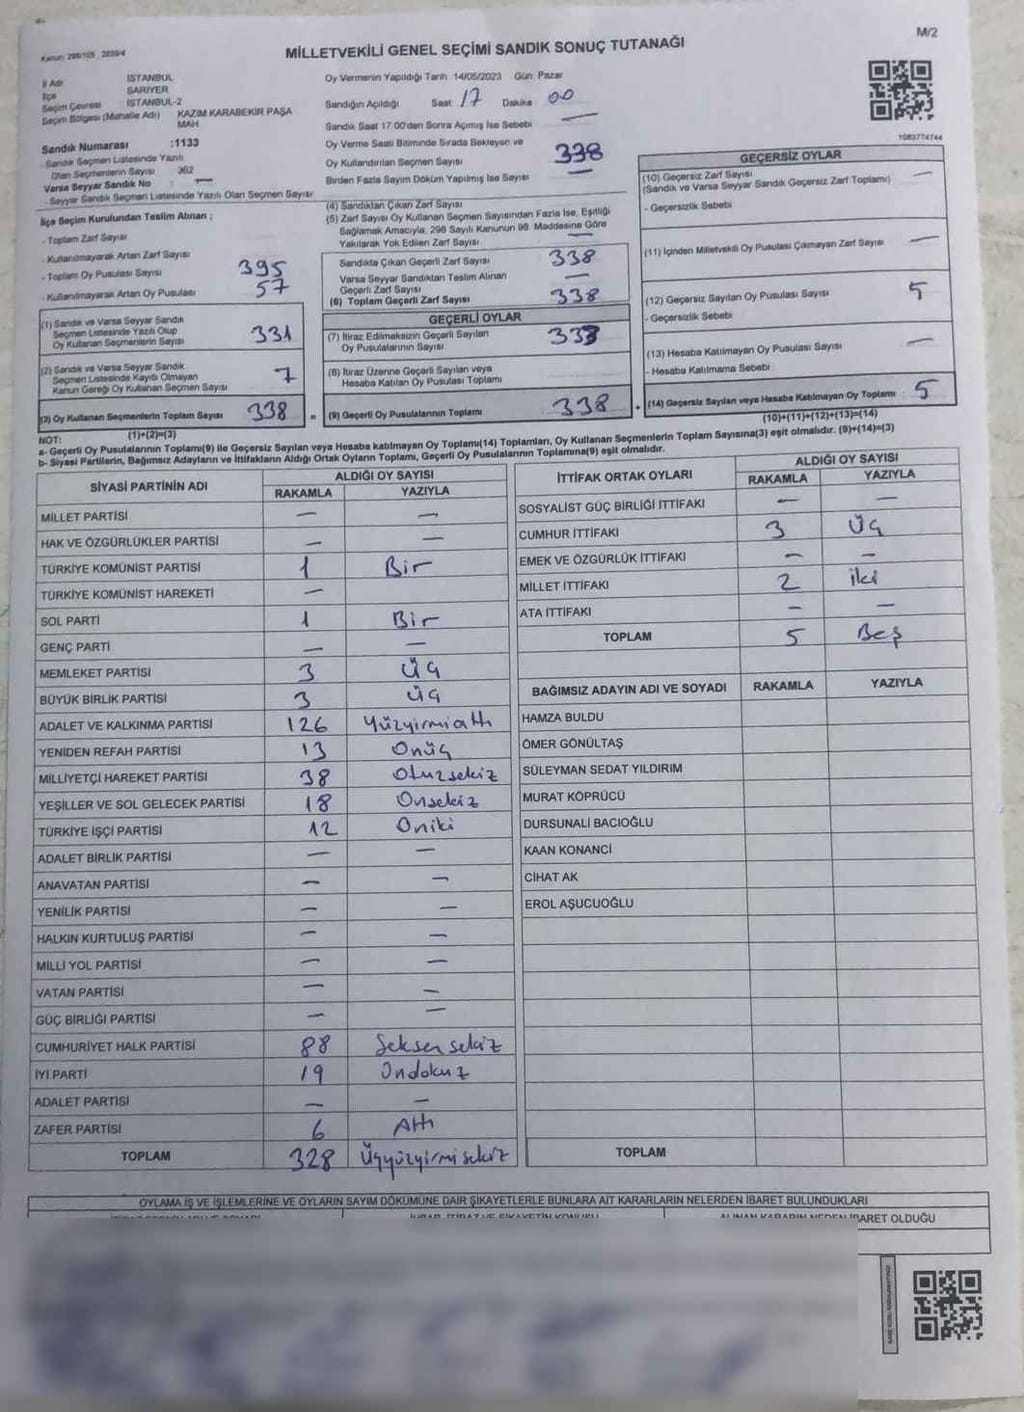 M/2
Kanun: 298/105 2839/4
MİLLETVEKİLİ GENEL SEÇİMİ SANDIK SONUÇ TUTANAĞI
İl Adı İSTANBUL
İlçe SARIYER
Seçim Çevresi İSTANBUL-2
Seçim Bölgesi (Mahalle Adı) KAZIM KARABEKİR PAŞA MAH
Sandık Numarası :1133
Sandık Seçmen Listesinde Yazılı Olan Seçmenlerin Sayısı 362
Varsa Seyyar Sandık No —
- Seyyar Sandık Seçmen Listesinde Yazılı Olan Seçmen Sayısı
Oy Vermenin Yapıldığı Tarih 14/05/2023 Gün Pazar
Sandığın Açıldığı Saat 17 Dakika 00
Sandık Saat 17:00'den Sonra Açımış İse Sebebi —
Oy Verme Saati Bitiminde Sırada Bekleyen ve Oy Kullandırılan Seçmen Sayısı 338
Birden Fazla Sayım Döküm Yapılmış İse Sayısı —
1083774744
İlçe Seçim Kurulundan Teslim Alınan ;
- Toplam Zarf Sayısı
- Kullanılmayarak Artan Zarf Sayısı
- Toplam Oy Pusulası Sayısı 395
- Kullanılmayarak Artan Oy Pusulası 57
(1) Sandık ve Varsa Seyyar Sandık Seçmen Listesinde Yazılı Olup Oy Kullanan Seçmenlerin Sayısı 331
(2) Sandık ve Varsa Seyyar Sandık Seçmen Listesinde Kayıtlı Olmayan Kanun Gereği Oy Kullanan Seçmen Sayısı 7
(3) Oy Kullanan Seçmenlerin Toplam Sayısı 338
(1)+(2)=(3)
(4) Sandıktan Çıkan Zarf Sayısı
(5) Zarf Sayısı Oy Kullanan Seçmen Sayısından Fazla İse, Eşitliği Sağlamak Amacıyla, 298 Sayılı Kanunun 98. Maddesine Göre Yakılarak Yok Edilen Zarf Sayısı
Sandıkta Çıkan Geçerli Zarf Sayısı 338
Varsa Seyyar Sandıktan Teslim Alınan Geçerli Zarf Sayısı —
(6) Toplam Geçerli Zarf Sayısı 338
GEÇERLİ OYLAR
(7) İtiraz Edilmeksizin Geçerli Sayılan Oy Pusulalarının Sayısı 333
(8) İtiraz Üzerine Geçerli Sayılan veya Hesaba Katılan Oy Pusulası Toplamı
= (9) Geçerli Oy Pusulalarının Toplamı 338
GEÇERSİZ OYLAR
(10) Geçersiz Zarf Sayısı —
(Sandık ve Varsa Seyyar Sandık Geçersiz Zarf Toplamı)
- Geçersizlik Sebebi
(11) İçinden Milletvekili Oy Pusulası Çıkmayan Zarf Sayısı —
(12) Geçersiz Sayılan Oy Pusulası Sayısı 5
- Geçersizlik Sebebi
(13) Hesaba Katılmayan Oy Pusulası Sayısı —
- Hesaba Katılmama Sebebi
+ (14) Geçersiz Sayılan veya Hesaba Katılmayan Oy Toplamı : 5
(10)+(11)+(12)+(13)=(14)
NOT:
a- Geçerli Oy Pusulalarının Toplamı(9) ile Geçersiz Sayılan veya Hesaba katılmayan Oy Toplamı(14) Toplamları, Oy Kullanan Seçmenlerin Toplam Sayısına(3) eşit olmalıdır. (9)+(14)=(3)
b- Siyasi Partilerin, Bağımsız Adayların ve İttifakların Aldığı Ortak Oyların Toplamı, Geçerli Oy Pusulasının Toplamına(9) eşit olmalıdır.
SİYASİ PARTİNİN ADI ALDIĞI OY SAYISI
RAKAMLA YAZIYLA
MİLLET PARTİSİ — —
HAK VE ÖZGÜRLÜKLER PARTİSİ — —
TÜRKİYE KOMÜNİST PARTİSİ 1 Bir
TÜRKİYE KOMÜNİST HAREKETİ —
SOL PARTİ 1 Bir
GENÇ PARTİ — —
MEMLEKET PARTİSİ 3 Üç
BÜYÜK BİRLİK PARTİSİ 3 Üç
ADALET VE KALKINMA PARTİSİ 126 Yüzyirmialtı
YENİDEN REFAH PARTİSİ 13 Onüç
MİLLİYETÇİ HAREKET PARTİSİ 38 Otuzsekiz
YEŞİLLER VE SOL GELECEK PARTİSİ 18 Onsekiz
TÜRKİYE İŞÇİ PARTİSİ 12 Oniki
ADALET BİRLİK PARTİSİ — —
ANAVATAN PARTİSİ — —
YENİLİK PARTİSİ — —
HALKIN KURTULUŞ PARTİSİ — —
MİLLİ YOL PARTİSİ — —
VATAN PARTİSİ — —
GÜÇ BİRLİĞİ PARTİSİ — —
CUMHURİYET HALK PARTİSİ 88 Seksensekiz
İYİ PARTİ 19 Ondokuz
ADALET PARTİSİ — —
ZAFER PARTİSİ 6 Altı
TOPLAM 328 Üçyüzyirmisekiz
İTTİFAK ORTAK OYLARI ALDIĞI OY SAYISI
RAKAMLA YAZIYLA
SOSYALİST GÜÇ BİRLİĞİ İTTİFAKI — —
CUMHUR İTTİFAKI 3 Üç
EMEK VE ÖZGÜRLÜK İTTİFAKI — —
MİLLET İTTİFAKI 2 İki
ATA İTTİFAKI — —
TOPLAM 5 Beş
BAĞIMSIZ ADAYIN ADI VE SOYADI RAKAMLA YAZIYLA
HAMZA BULDU
ÖMER GÖNÜLTAŞ
SÜLEYMAN SEDAT YILDIRIM
MURAT KÖPRÜCÜ
DURSUNALİ BACIOĞLU
KAAN KONANCİ
CİHAT AK
EROL AŞUCUOĞLU
TOPLAM
OYLAMA İŞ VE İŞLEMLERİNE VE OYLARIN SAYIM DÖKÜMÜNE DAİR ŞİKAYETLERLE BUNLARA AİT KARARLARIN NELERDEN İBARET BULUNDUKLARI
İBARET OLDUĞU